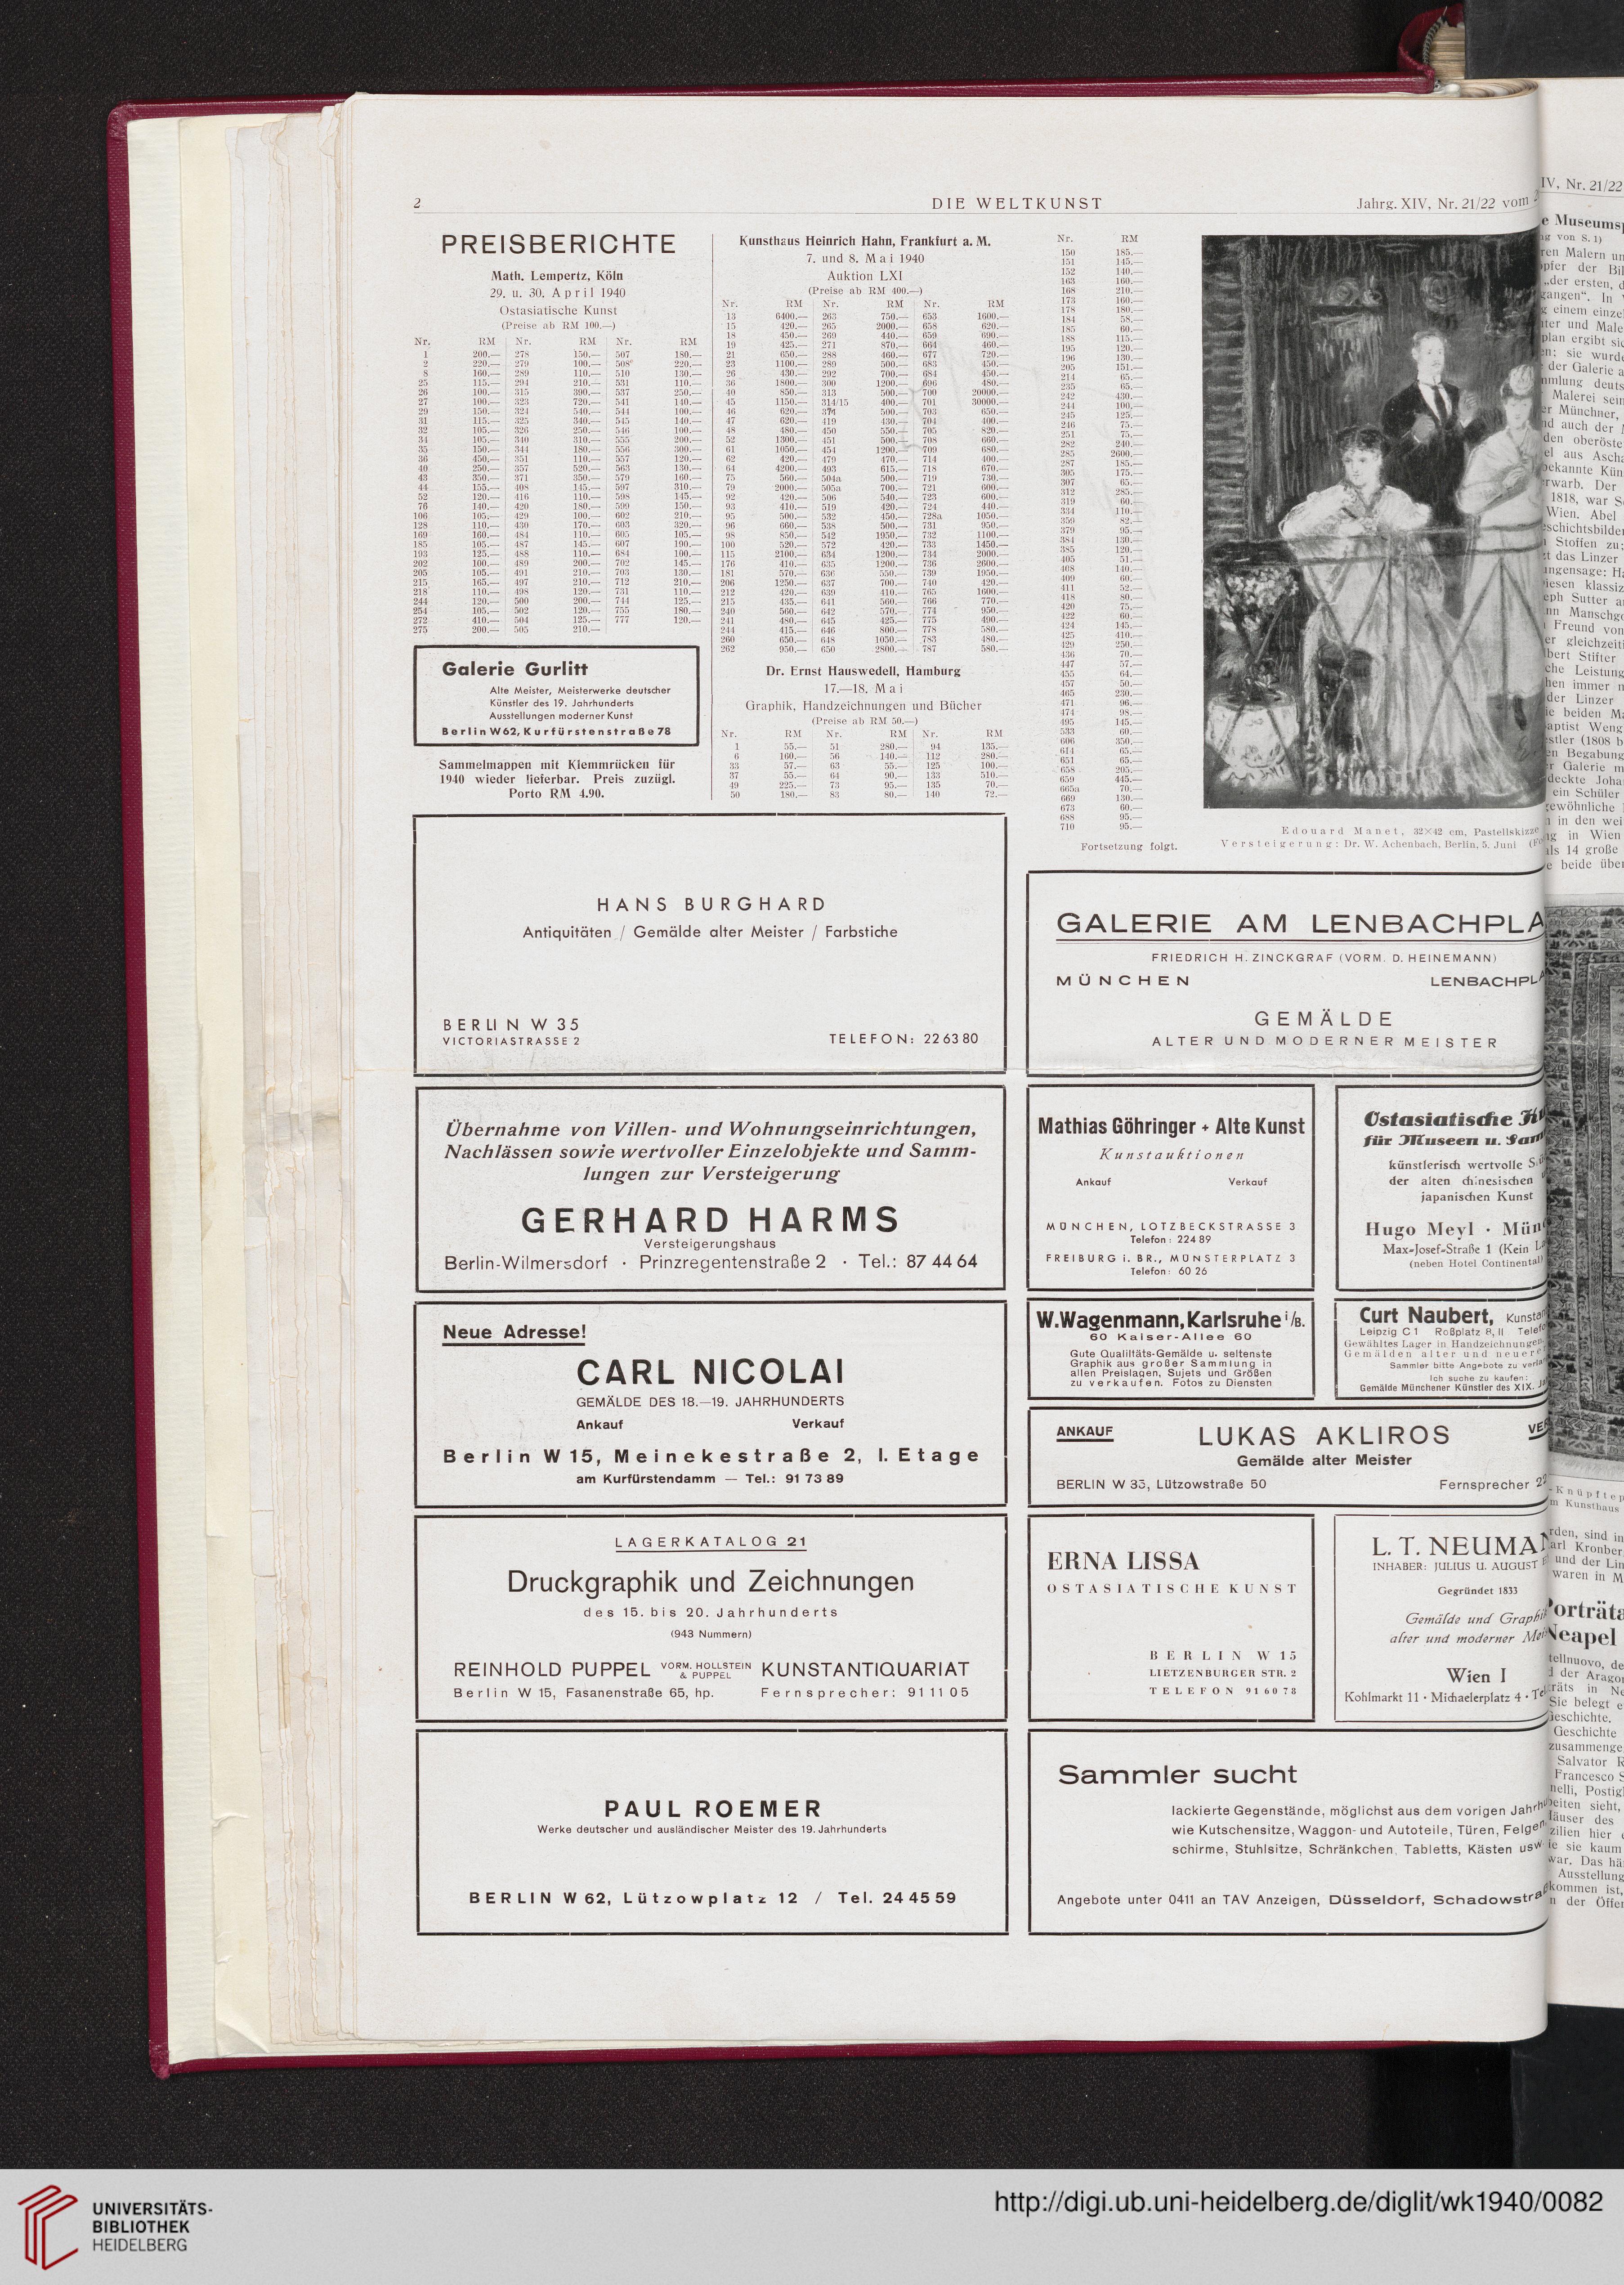 2
DIE WELTKUNST
Jahrg. XIV, Nr. 21/22 vom
PREISBERICHTE
Math. Lempertz, Köln
29. u. 30. April 1940
Ostasiatische Kunst
(Preise ab RM 100.—)
Nr. RM Nr. RM Nr. RM
1 200.— 278 150.— 507 180.—
2 220.— 279 100.— 508 220.—
8 160.— 289 110.— 510 130.—
25 115.— 294 210.— 531 110.—
26 100.— 315 390.— 537 250.—
27 100.— 323 720.— 541 140.—
29 150.— 324 540.— 544 100.—
31 115.— 325 340.— 545 140.—
32 105.— 326 250.— 546 100.—
34 105.— 340 310.— 555 200.—
35 150.— 344 180.— 556 300.—
36 450.— 351 110.— 557 120.—
40 250.— 357 520.— 563 130.—
43 350.— 371 350.— 579 160.—
44 155.— 408 145.— 597 310.—
52 120.— 416 110.— 598 145.—
76 140.— 420 180.— 599 150.—
106 105.— 429 100.— 602 210.—
128 110.— 430 170.— 603 320.—
169 160.— 484 110.— 605 105.—
185 105.— 487 145.— 607 190.—
193 125.— 488 110.— 684 100.—
202 100.— 489 200.— 702 145.—
205 105.— 491 210.— 703 130.—
215 165.— 497 210.— 712 210.—
218 110.— 498 120.— 731 110.—
244 120.— 500 200.— 744 125.—
254 105.— 502 120.— 755 180.—
272 410.— 504 125.— 777 120.—
275 200.— 505 210.—
Galerie Gurlitt
Alte Meister, Meisterwerke deutscher
Künstler des 19. Jahrhunderts
Ausstellungen moderner Kunst
Berlin W62, Kurfürstenstraße 78
Sammelmappen mit Klemmrücken für
1940 wieder lieferbar. Preis zuzügl.
Porto RM 4.90.
Kunsthaus Heinrich Hahn, Frankfurt a. M.
7. und 8. Mai 1940
Auktion LXI
(Preise ab RM 400.—)
Nr. RM Nr. RM Nr. RM
13 6400.— 263 750.— 653 1600.—
15 420.— 265 2000.— 658 620.—
18 450.— 269 440.— 659 690.—
19 425.— 271 870.— 664 460.—
21 650.— 288 460.— 677 720.—
23 1100.— 289 500.— 683 450.—
26 430.— 292 700.— 684 450.—
36 1800.— 300 1200.— 696 480.—
40 850.— 313 500.— 700 20000.—
45 1150.— 314/15 400.— 701 30000.—
46 620.— 374 500.— 703 650.—
47 620.— 419 430.— 704 400.—
48 480.— 450 550.— 705 820.—
52 1300.— 451 500.— 708 660.—
61 1050.— 454 1200.— 709 680.—
62 420.— 479 470.— 714 400.—
64 4200.— 493 615.— 718 670.—
75 560.— 504a 500.— 719 730.—
79 2000.— 505a 700.— 721 600.—
92 420.— 506 540.— 723 600.—
93 410.— 519 420.— 724 440.—
95 500.— 532 450.— 728a 1050.—
96 660.— 538 500.— 731 950.—
98 850.— 542 1950.— 732 1100.—
100 520.— 572 420.— 733 1450.—
115 2100.— 634 1200.— 734 2000.—
176 410.— 635 1200.— 736 2600.—
181 570.— 636 550.— 739 1950.—
206 1250.— 637 700.— 740 420.—
212 420.— 639 410.— 765 1600.—
215 435.— 641 560.— 766 770.—
240 560.— 642 570.— 774 950.—
241 480.— 645 425.— 775 490.—
244 415.— 646 800.— 778 580.—
260 650.— 648 1050.— 783 480.—
262 950.— 650 2800.— 787 580.—
Dr. Ernst Hauswedell, Hamburg
17.—18. Mai
Graphik, Handzeichnungen und Bücher
(Preise ab RM 50.—)
Nr. RM Nr. RM Nr. RM
1 55.— 51 280.— 94 135.—
6 160.— 56 140.— 112 280.—
33 57.— 63 55.— 125 100.—
37 55.— 64 90.— 133 510.—
49 225.— 73 95.— 135 70.—
50 180.— 83 80.— 140 72.—
Nr. RM
150 185.—
151 145.—
152 140.—
163 160.—
168 210.—
173 160.—
178 180.—
184 58.—
185 60.—
188 115.—
195 120.—
196 130.—
205 151.—
214 65.—
235 65.—
242 430.—
244 100.—
245 125.—
246 75.—
251 75.—
282 240.—
285 2600.—
287 185.—
305 175.—
307 65.—
312 285.—
319 60.—
334 110.—
359 82.—
379 95.—
384 130.—
385 120.—
405 51.—
408 140.—
409 60.—
411 52.—
418 80.—
420 75.—
422 60.—
424 145.—
425 410.—
429 250.—
436 70.—
447 57.—
455 64.—
457 50.—
465 230.—
471 96.—
474 98.—
495 145.—
533 60.—
606 350.—
614 65.—
651 65.—
658 205.—
659 445.—
665a 70.—
669 130.—
673 60.—
688 95.—
710 95.—
Fortsetzung folgt.
Edouard Manet, 32×42 cm, Pastellskizze
Versteigerung: Dr. W. Achenbach, Berlin, 5. Juni
HANS BURGHARD
Antiquitäten / Gemälde alter Meister / Farbstiche
BERLIN W 35
VICTORIASTRASSE 2
TELEFON: 22 63 80
GALERIE AM LENBACHPLA
FRIEDRICH H. ZINCKGRAF (VORM. D. HEINEMANN)
MÜNCHEN
LENBACHPLA
GEMÄLDE
ALTER UND MODERNER MEISTER
Übernahme von Villen- und Wohnungseinrichtungen,
Nachlässen sowie wertvoller Einzelobjekte und Samm-
lungen zur Versteigerung
GERHARD HARMS
Versteigerungshaus
Berlin-Wilmersdorf · Prinzregentenstraße 2 · Tel.: 87 44 64
Mathias Göhringer + Alte Kunst
Kunstauktionen
Ankauf Verkauf
MÜNCHEN, LOTZBECKSTRASSE 3
Telefon: 224 89
FREIBURG i. BR., MÜNSTERPLATZ 3
Telefon: 60 26
Ostasiatische
für Museen u.
künstlerisch wertvolle
der alten chinesischen
japanischen Kunst
Hugo Meyl ·
Max-Josef-Straße 1 (Kein
(neben Hotel Continental)
Neue Adresse!
CARL NICOLAI
GEMÄLDE DES 18.—19. JAHRHUNDERTS
Ankauf Verkauf
Berlin W 15, Meinekestraße 2, I. Etage
am Kurfürstendamm — Tel.: 91 73 89
W. Wagenmann, Karlsruhe i/B.
60 Kaiser-Allee 60
Gute Qualitäts-Gemälde u. seltenste
Graphik aus großer Sammlung in
allen Preislagen, Sujets und Größen
zu verkaufen. Fotos zu Diensten
Curt Naubert,
Leipzig C 1 Roßplatz 8, II
Gewähltes Lager in Handzeichnungen,
Gemälden alter und neuer
Sammler bitte Angebote zu
Ich suche zu kaufen:
Gemälde Münchener Künstler des XIX.
ANKAUF
LUKAS AKLIROS
Gemälde alter Meister
BERLIN W 35, Lützowstraße 50
Fernsprecher
LAGERKATALOG 21
Druckgraphik und Zeichnungen
des 15. bis 20. Jahrhunderts
(943 Nummern)
REINHOLD PUPPEL VORM. HOLLSTEIN & PUPPEL KUNSTANTIQUARIAT
Berlin W 15, Fasanenstraße 65, hp. Fernsprecher: 91 11 05
ERNA LISSA
OSTASIATISCHE KUNST
BERLIN W 15
LIETZENBURGER STR. 2
TELEFON 91 60 78
L. T. NEUMA
INHABER: JULIUS U. AUGUST
Gegründet 1833
Gemälde und
alter und moderner
Wien I
Kohlmarkt 11 · Michaelerplatz 4 ·
PAUL ROEMER
Werke deutscher und ausländischer Meister des 19. Jahrhunderts
BERLIN W 62, Lützowplatz 12 / Tel. 24 45 59
Sammler sucht
lackierte Gegenstände, möglichst aus dem vorigen
wie Kutschensitze, Waggon- und Autoteile, Türen,
schirme, Stuhlsitze, Schränkchen, Tabletts, Kästen usw
Angebote unter 0411 an TAV Anzeigen, Düsseldorf,
IV, Nr. 21/22
UNIVERSITÄTS-
BIBLIOTHEK
HEIDELBERG
http://digi.ub.uni-heidelberg.de/diglit/wk1940/0082